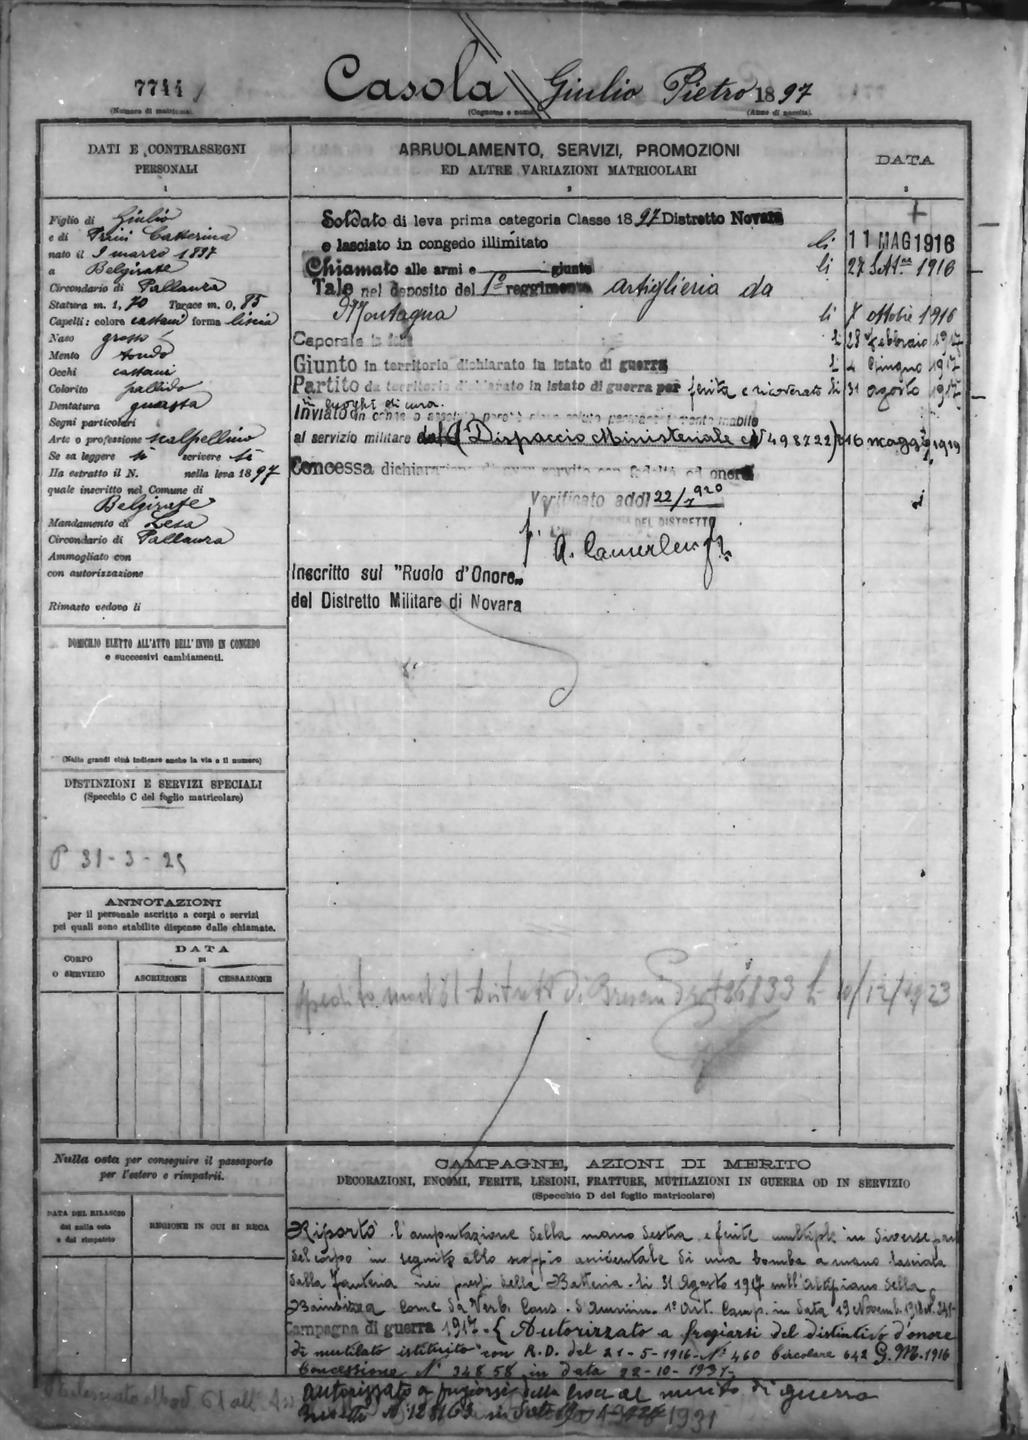 7744
Casola Giulio Pietro 1897
(Numero di matricola)
(Cognome e nome)
(Anno di nascita).
DATI E CONTRASSEGNI
PERSONALI
1
ARRUOLAMENTO, SERVIZI, PROMOZIONI
ED ALTRE VARIAZIONI MATRICOLARI
2
DATA
3
Figlio di Giulio
e di Prini Catterina
nato il 9 marzo 1897
a Belgirate
Circondario di Pallanza
Statura m. 1, 70 Torace m. 0, 85
Capelli: colore castani forma liscia
Naso grosso
Mento tondo
Occhi castani
Colorito pallido
Dentatura guasta
Segni particolari
Arte o professione scalpellino
Se sa leggere sì scrivere sì
Ha estratto il N. nella leva 1897
quale inscritto nel Comune di
Belgirate
Mandamento di Lesa
Circondario di Pallanza
Ammogliato con
con autorizzazione
Rimasto vedovo li
Soldato di leva prima categoria Classe 1897 Distretto Novara
e lasciato in congedo illimitato li 11 MAG 1916
Chiamato alle armi e giunto li 27 Sett.re 1916
Tale nel deposito del 1° reggimento artiglieria da
Montagna li 7 ottobre 1916
Caporale in 28 Febbraio 1917
Giunto in territorio dichiarato in istato di guerra 4 Giugno 1917
Partito da territorio dichiarato in istato di guerra per ferita e ricoverato li 31 agosto 1917
in luoghi di cura.
Inviato in
al servizio militare (Dispaccio Ministeriale N 498722) 16 maggio 1919
Concessa dichiarazione di aver servito con fedeltà ed onore
Verificato addì 22/7 920
DEL DISTRETTO
Inscritto sul "Ruolo d'Onore"
del Distretto Militare di Novara
DOMICILIO ELETTO ALL'ATTO DELL'INVIO IN CONGEDO
e successivi cambiamenti.
(Nelle grandi città indicare anche la via e il numero)
DISTINZIONI E SERVIZI SPECIALI
(Specchio C del foglio matricolare)
P 31-3-25
ANNOTAZIONI
per il personale ascritto a corpi o servizi
pei quali sono stabilite dispense dalle chiamate.
CORPO
O SERVIZIO
DATA
DI
ASCRIZIONE
CESSAZIONE
Spedito mod 61 Distretto di 10/12/1923
Nulla osta per conseguire il passaporto
per l'estero e rimpatrii.
DATA DEL RILASCIO
del nulla osta
e del rimpatrio
REGIONE IN CUI SI RECA
CAMPAGNE, AZIONI DI MERITO
DECORAZIONI, ENCOMI, FERITE, LESIONI, FRATTURE, MUTILAZIONI IN GUERRA OD IN SERVIZIO
(Specchio D del foglio matricolare)
Riportò l'amputazione della mano destra e ferite multiple in diverse parti
del corpo in seguito allo scoppio accidentale di una bomba a mano lasciata
dalla fanteria nei pressi della Batteria. li 31 Agosto 1917 sull'altipiano della
Bainsizza come da Verb. Cons. d'Ammin. 1° Art. Camp. in data 19 Novemb. 1918
Campagna di guerra 1917 - (Autorizzato a fregiarsi del distintivo d'onore
di mutilato istituito con R.D. del 21-5-1916 - N° 460 Circolare 642 G.M. 1916
Concessione N° 34858 in data 22-10-1931.
Autorizzato a fregiarsi della Croce al merito di guerra